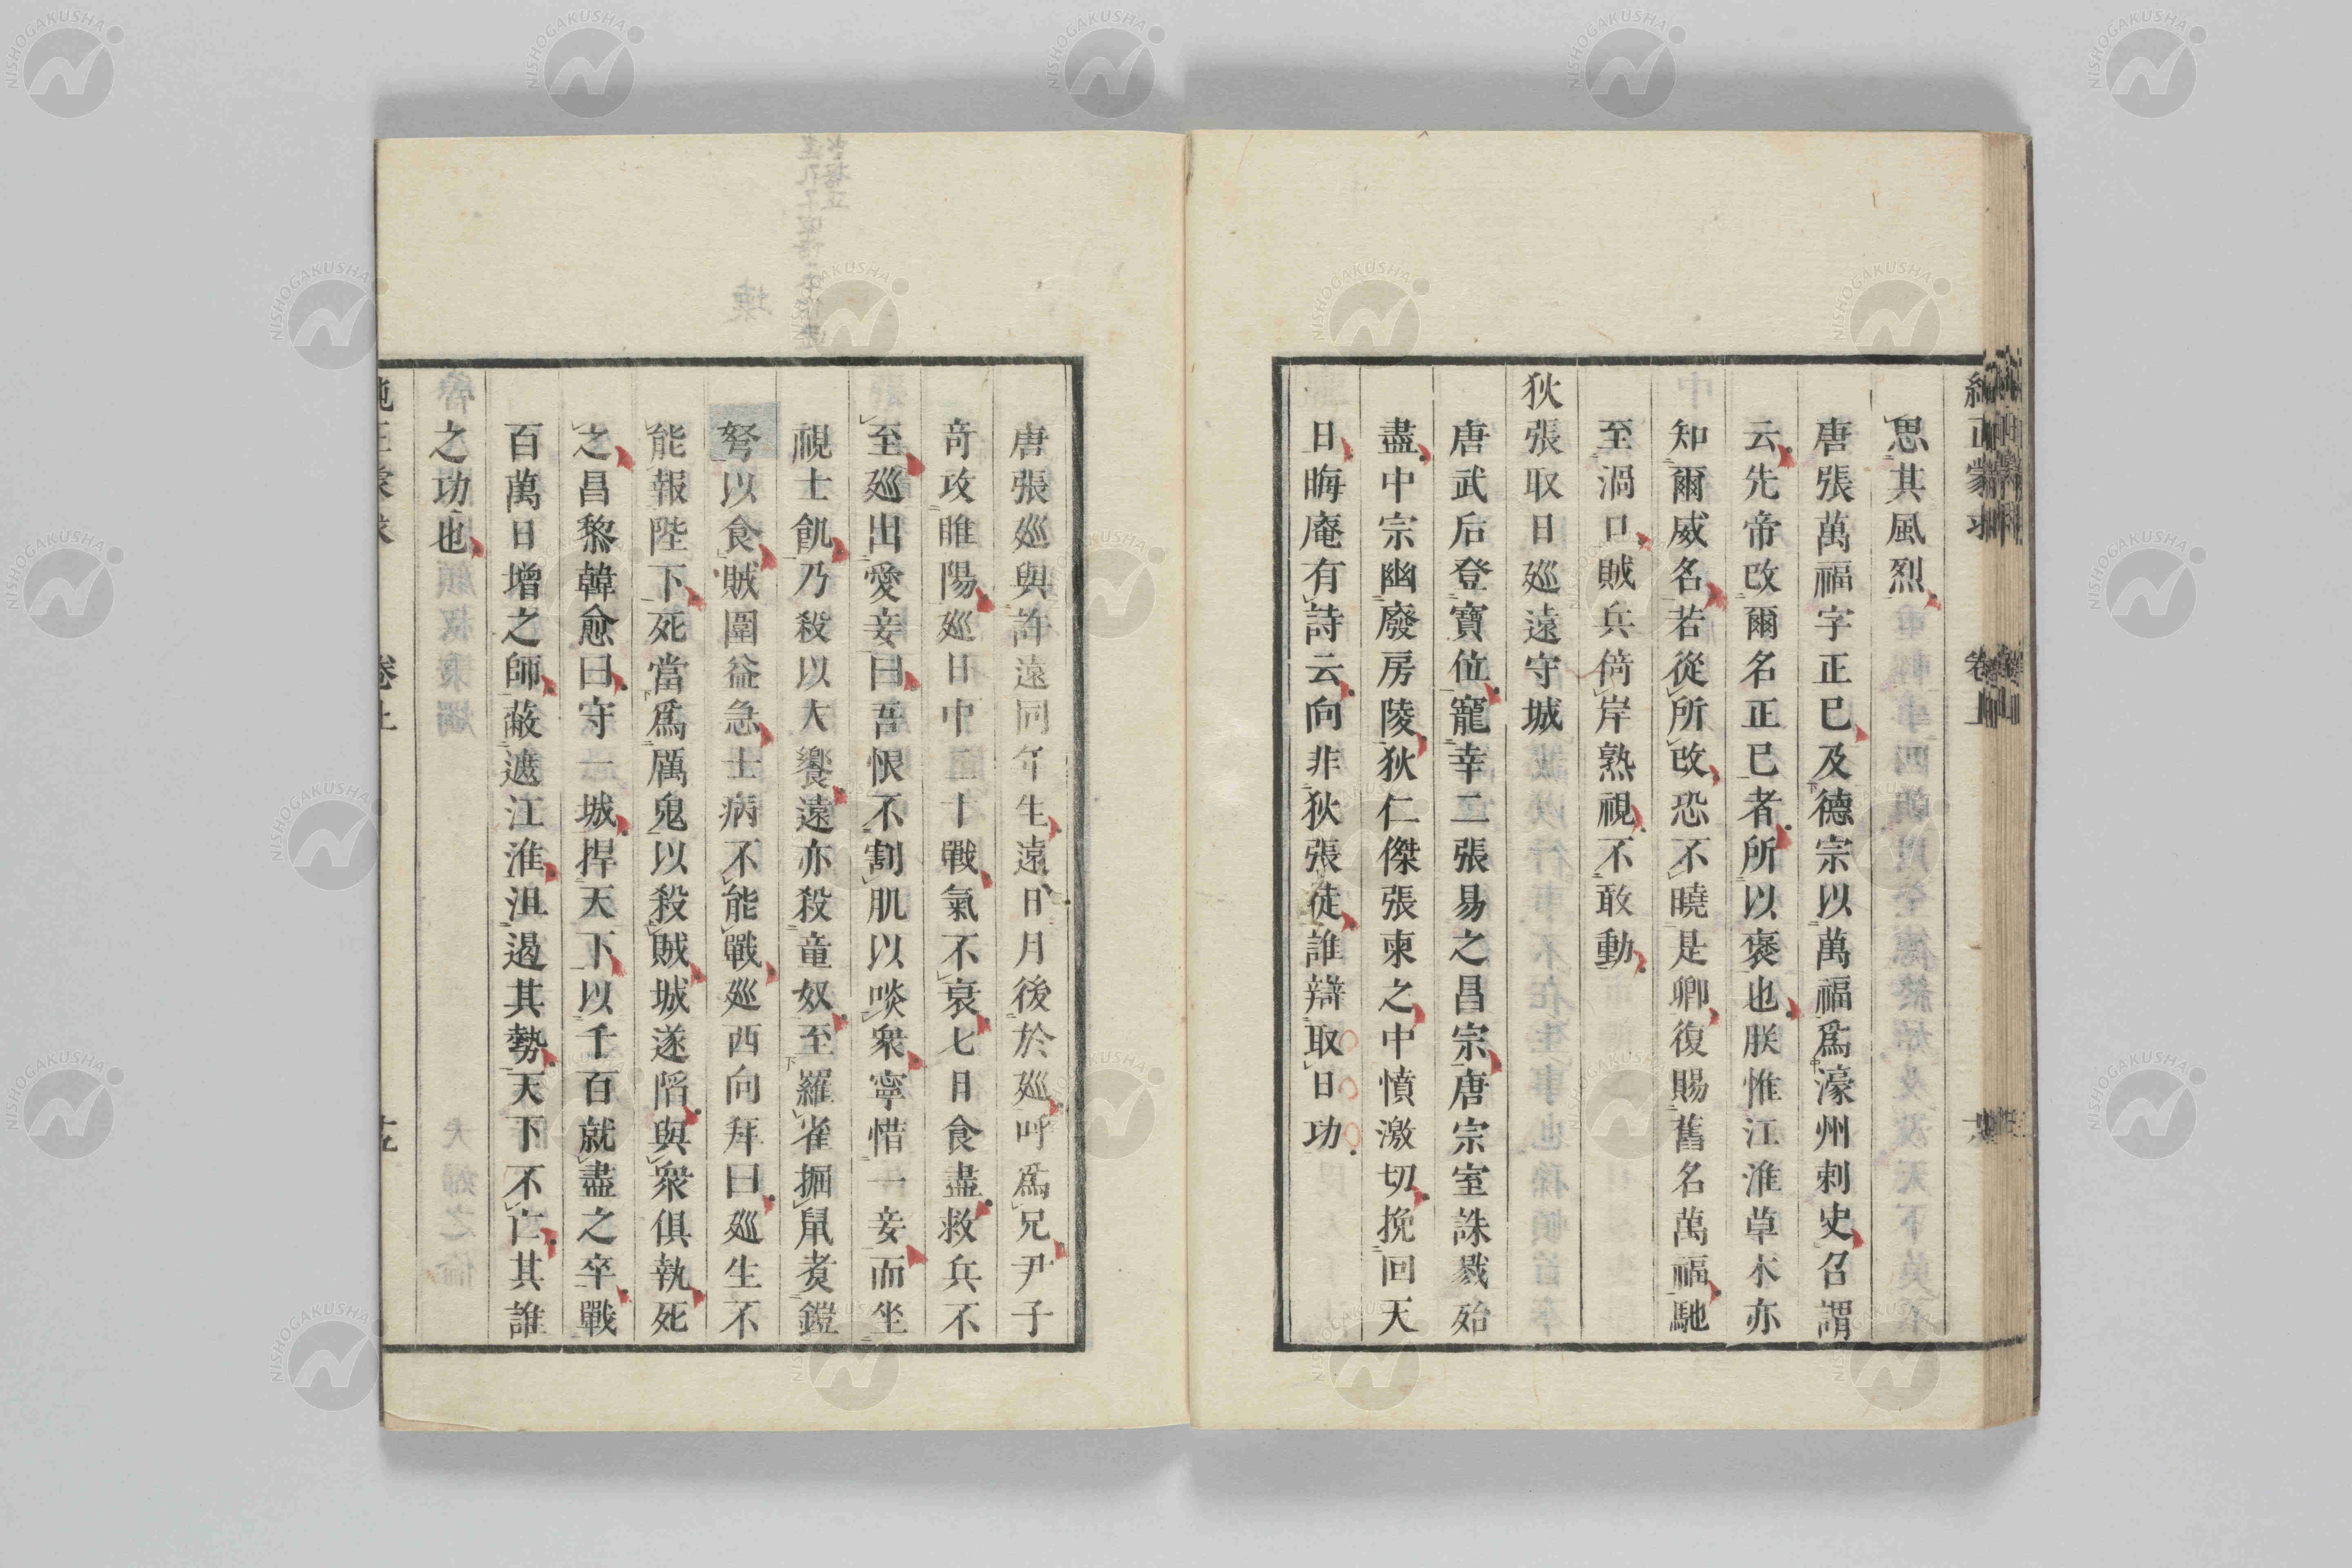 思其風烈
唐張萬福字正巳及德宗以萬福爲濠州刺史召謂
云先帝改爾名正巳者所以褒也朕惟江淮草木亦
知爾威名若從所改恐不曉是卿復賜舊名萬福馳
至渦口賊兵倚岸熟視不敢動
狄張取日廵遠守城
唐武后登寶位寵幸二張易之昌宗唐宗室誅戮殆
盡中宗幽廢房陵狄仁傑張柬之中憤激切挽回天
日晦庵有詩云向非狄張徒誰辯取日功
唐張廵與許遠同年生遠日月後於廵呼爲兄尹子
竒攻睢陽廵日中二十戰氣不衰七日食盡救兵不
至廵出愛妾曰吾恨不割肌以啖衆寧惜一妾而坐
視士飢乃殺以大饗遠亦殺童奴至羅雀掘鼠煑鎧
弩以食賊圍益急士病不能戰廵西向拜曰廵生不
能報陛下死當爲厲鬼以殺賊城遂䧟與衆俱執死
之昌黎韓愈曰守一城捍天下以千百就盡之卒戰
百萬日增之師蔽遮江淮沮遏其勢天下不亡其誰
之功也
卷上
NISHOGAKUSHA